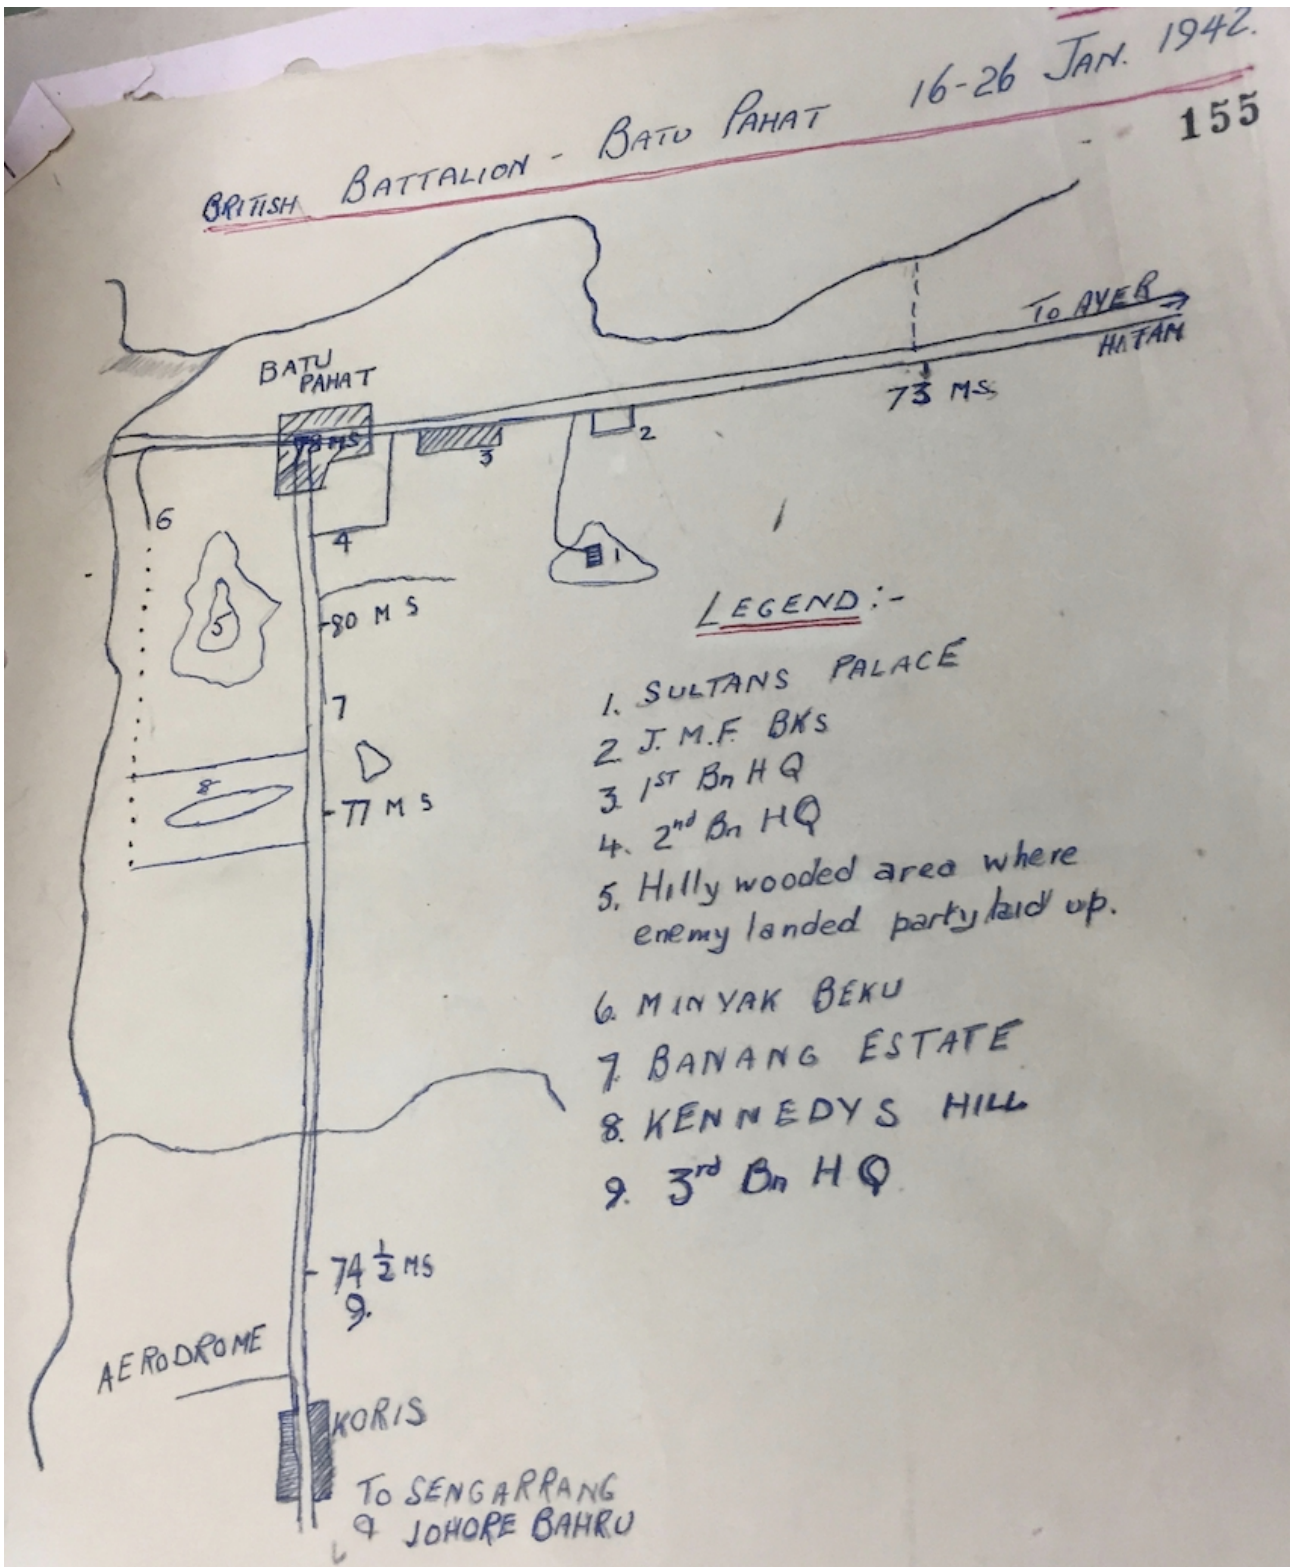 BRITISH BATTALION - BATU PAHAT 16-26 JAN. 1942.
155
TO AYER
HITAM
BATU
PAHAT
73 MS
78 MS
2
3
6
4
1
5
80 M S
7
8
77 M S
LEGEND:-
1. SULTANS PALACE
2 J. M. F. BKS
3. 1ST Bn H Q
4. 2nd Bn HQ
5. Hilly wooded area where
enemy landed party laid up.
6. MINYAK BEKU
7. BANANG ESTATE
8. KENNEDYS HILL
9. 3rd Bn H Q
74 1/2 MS
9.
AERODROME
KORIS
TO SENGARRANG
& JOHORE BAHRU